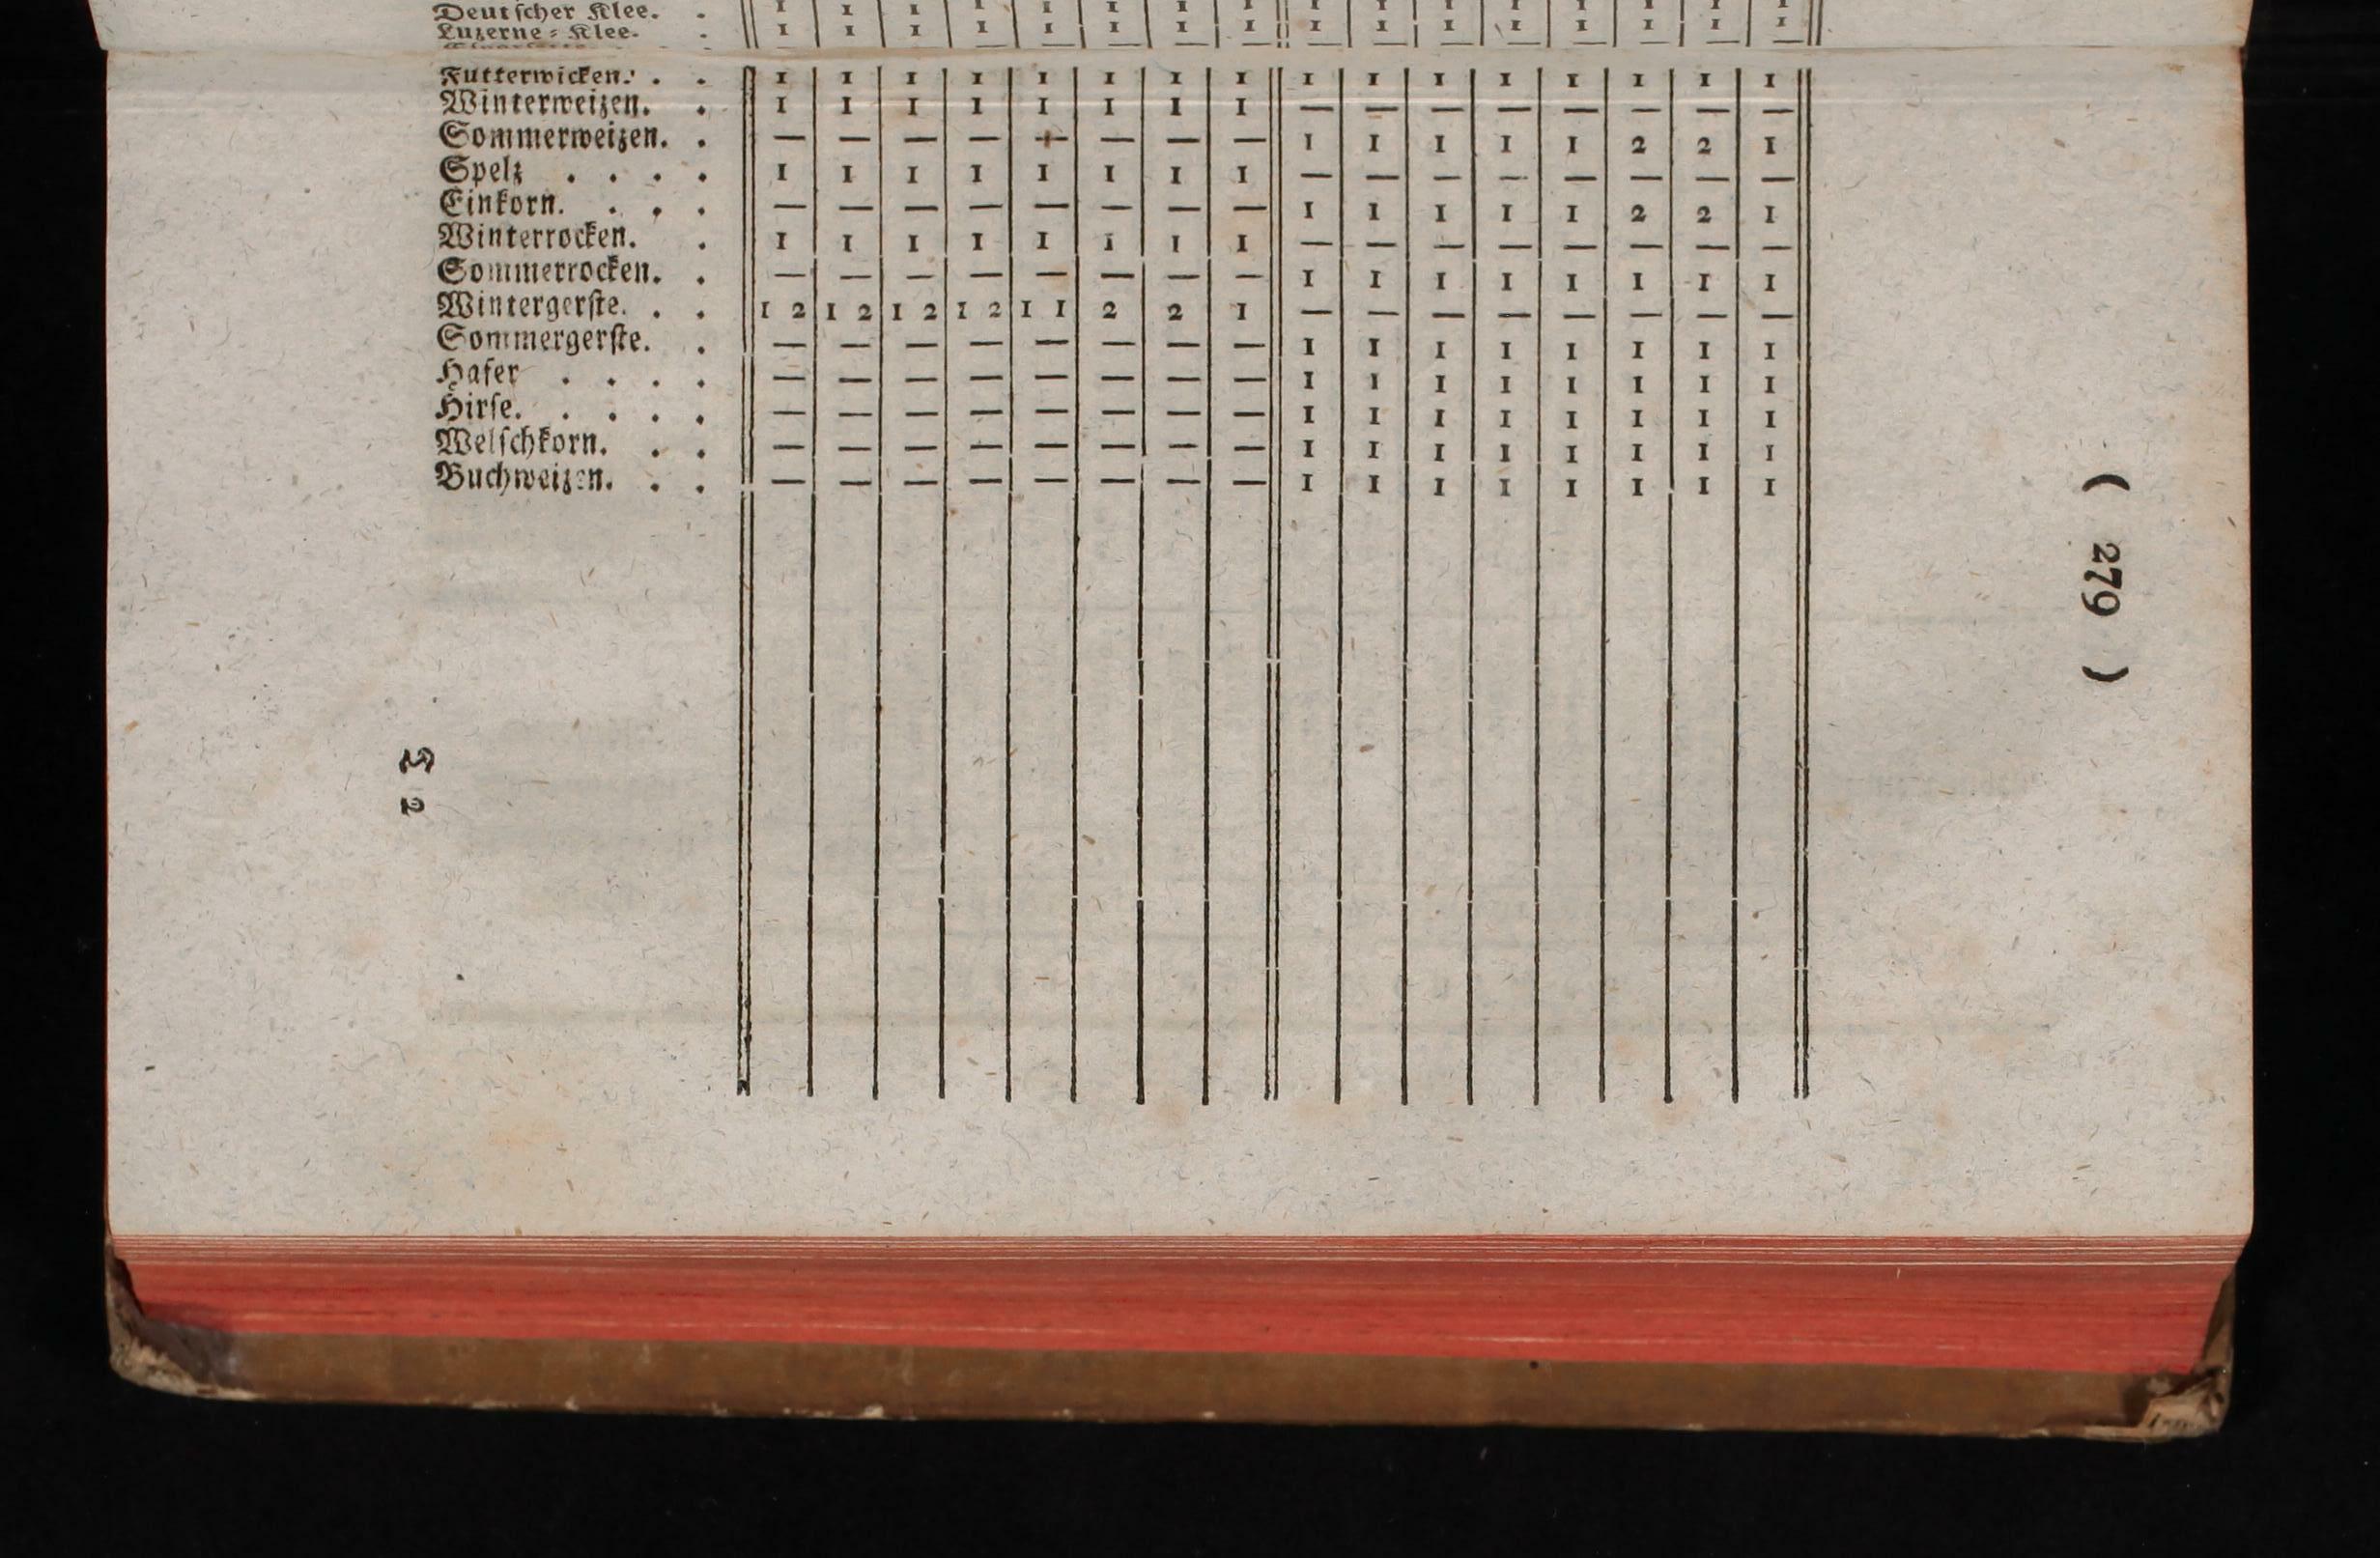 Deutscher Klee. . 1 1 1 1 1 1 1 1 1 1 1 1 1 1 1 1
Luzerne-Klee. . 1 1 1 1 1 1 1 1 1 1 1 1 1 1 1 1
Futterwicken. . . 1 1 1 1 1 1 1 1 1 1 1 1 1 1 1 1
Winterweizen. . 1 1 1 1 1 1 1 1 — — — — — — — —
Sommerweizen. . — — — — — — — — 1 1 1 1 1 2 2 1
Spelz . . . . 1 1 1 1 1 1 1 1 — — — — — — — —
Einkorn. . . . — — — — — — — — 1 1 1 1 1 2 2 1
Winterrocken. . 1 1 1 1 1 1 1 1 — — — — — — — —
Sommerrocken. . — — — — — — — — 1 1 1 1 1 1 1 1
Wintergerste. . . 1 2 1 2 1 2 1 2 1 1 2 2 1 — — — — — — — —
Sommergerste. . — — — — — — — — 1 1 1 1 1 1 1 1
Hafer . . . . — — — — — — — — 1 1 1 1 1 1 1 1
Hirse. . . . . — — — — — — — — 1 1 1 1 1 1 1 1
Welschkorn. . . — — — — — — — — 1 1 1 1 1 1 1 1
Buchweizen. . . — — — — — — — — 1 1 1 1 1 1 1 1
( 279 )